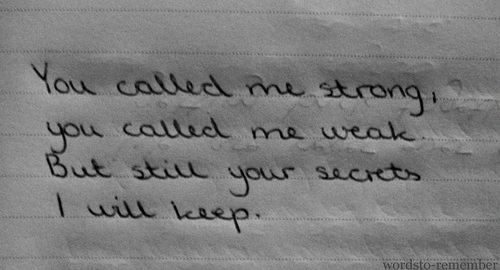 You called me strong,
you called me weak.
But still your secrets
I will keep.
wordsto-remember